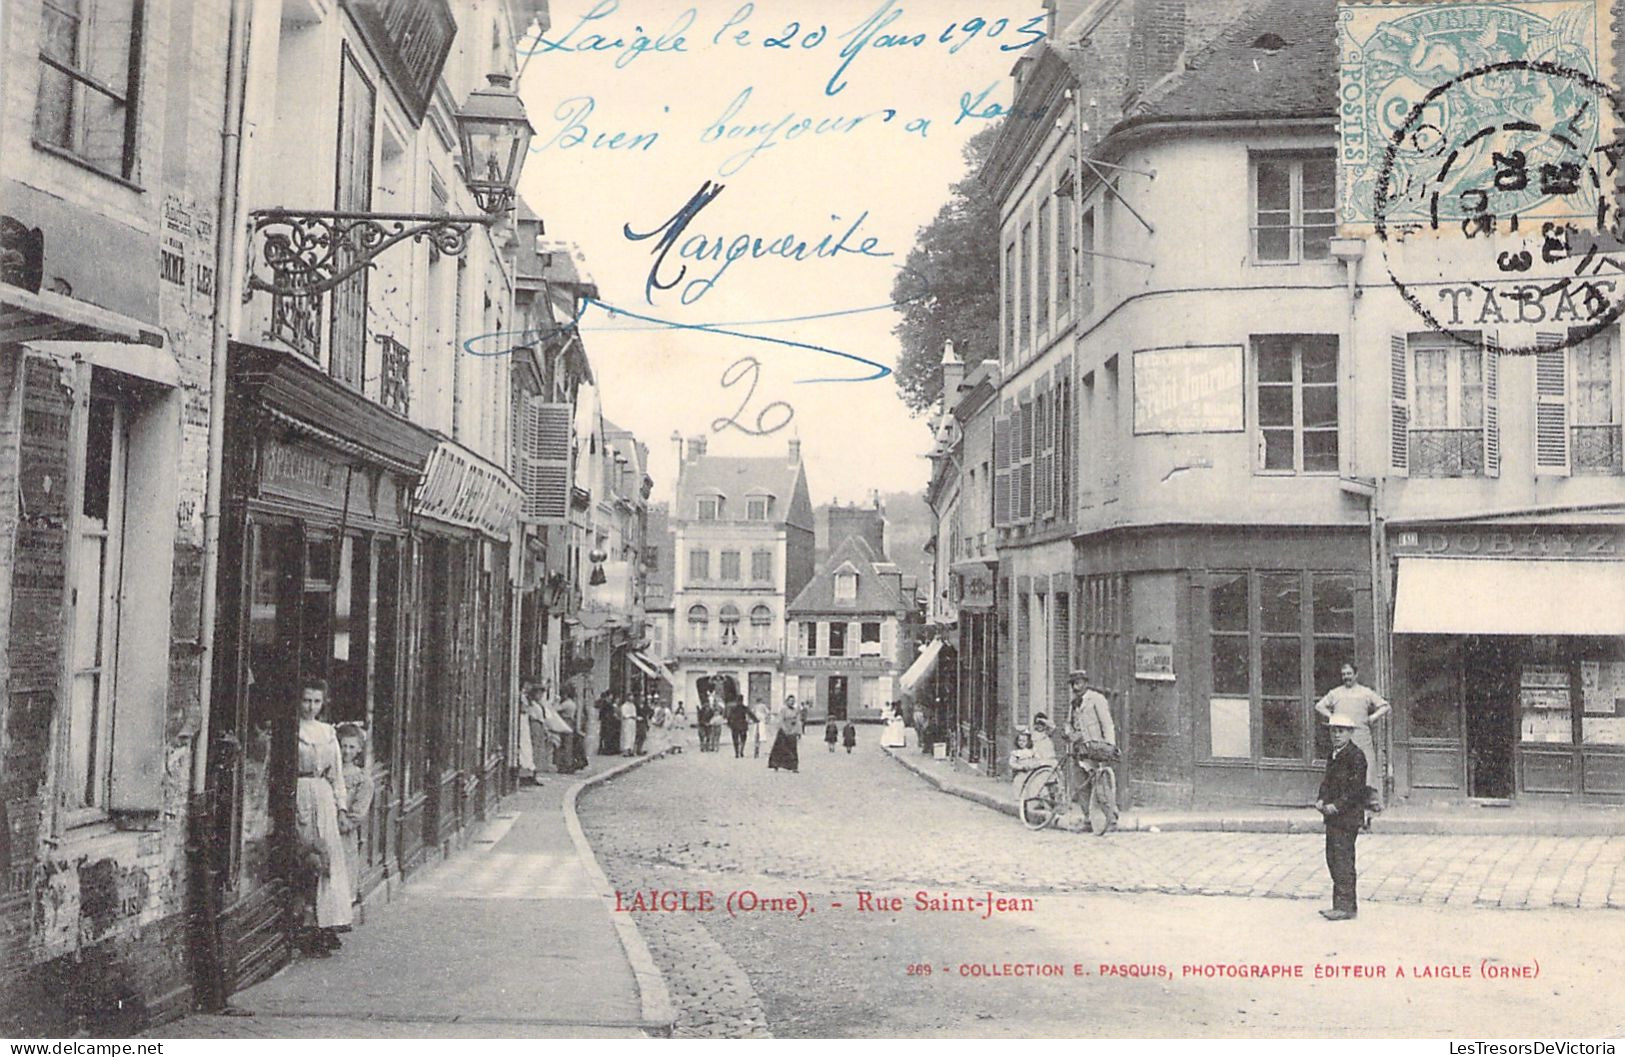 Laigle le 20 Mars 1905
Bien bonjour a tous
Marguerite
20
POSTES
20 - 3
05
TABAC
Petit Journal
DOBRYZ
RESTAURANT
LAIGLE (Orne). - Rue Saint-Jean
269 - COLLECTION E. PASQUIS, PHOTOGRAPHE ÉDITEUR A LAIGLE (ORNE)
LesTresorsDeVictoria